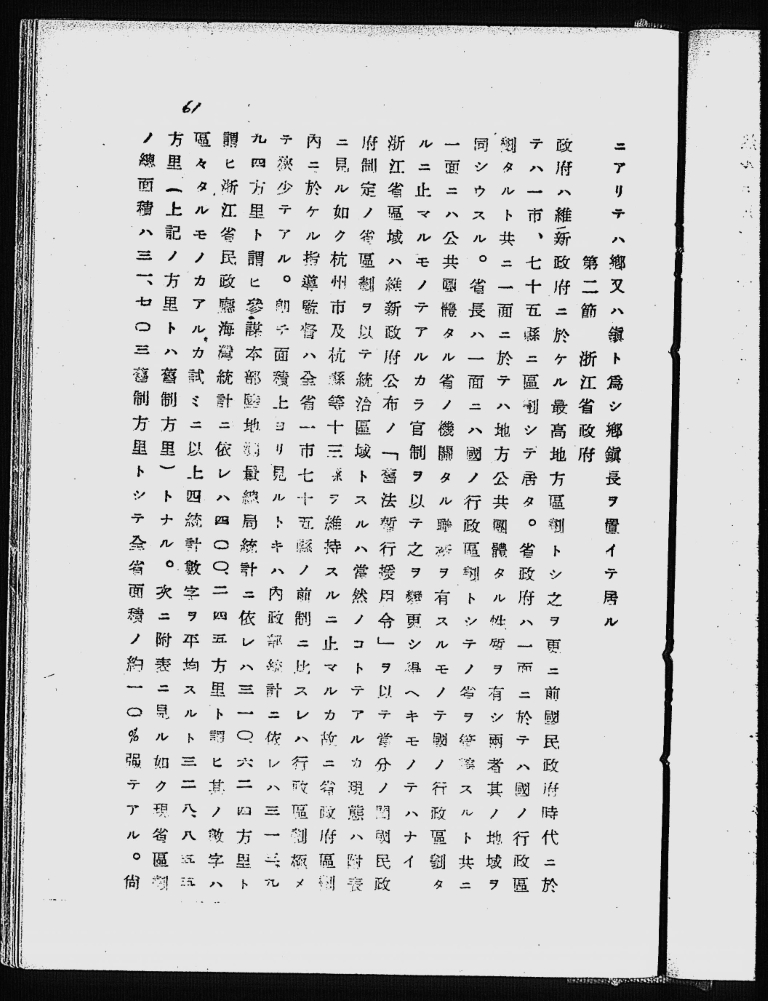 ニアリテハ鄕又ハ鎭ト爲シ鄕鎭長ヲ置イテ居ル
第二節　浙江省政府
政府ハ維新政府ニ於ケル最高地方區劃トシ之ヲ更ニ前國民政府時代ニ於
テハ一市、七十五縣ニ區劃シテ居タ。省政府ハ一面ニ於テハ國ノ行政區
劃タルト共ニ一面ニ於テハ地方公共團體タル性質ヲ有シ兩者其ノ地域ヲ
同シウスル。省長ハ一面ニハ國ノ行政區劃トシテノ省ヲ管掌スルト共ニ
一面ニハ公共團體タル省ノ機關タル職務ヲ有スルモノテ國ノ行政區劃タ
ルニ止マルモノテアルカラ官制ヲ以テ之ヲ變更シ得ヘキモノテハナイ
浙江省區域ハ維新政府公布ノ「舊法暫行援用令」ヲ以テ當分ノ間國民政
府制定ノ省區劃ヲ以テ統治區域トスルハ當然ノコトテアルカ現態ハ附表
ニ見ル如ク杭州市及杭縣等十三縣ヲ維持スルニ止マルカ故ニ省政府區劃
內ニ於ケル指導監督ハ全省一市七十五縣ノ前制ニ比スレハ行政區劃極メ
テ狹少テアル。卽チ面積上ヨリ見ルトキハ內政部統計ニ依レハ三一三、九
九四方里ト謂ヒ參謀本部陸地測量總局統計ニ依レハ三一〇、六二四方里ト
謂ヒ浙江省民政廳海灣統計ニ依レハ四〇〇、二四五方里ト謂ヒ其ノ數字ハ
區々タルモノカアルカ試ミニ以上四統計數字ヲ平均スルト三二八、八五五
方里（上記ノ方里トハ舊制方里）トナル。次ニ附表ニ見ル如ク現省區劃
ノ總面積ハ三一、七〇三舊制方里トシテ全省面積ノ約一〇％强テアル。尙
61